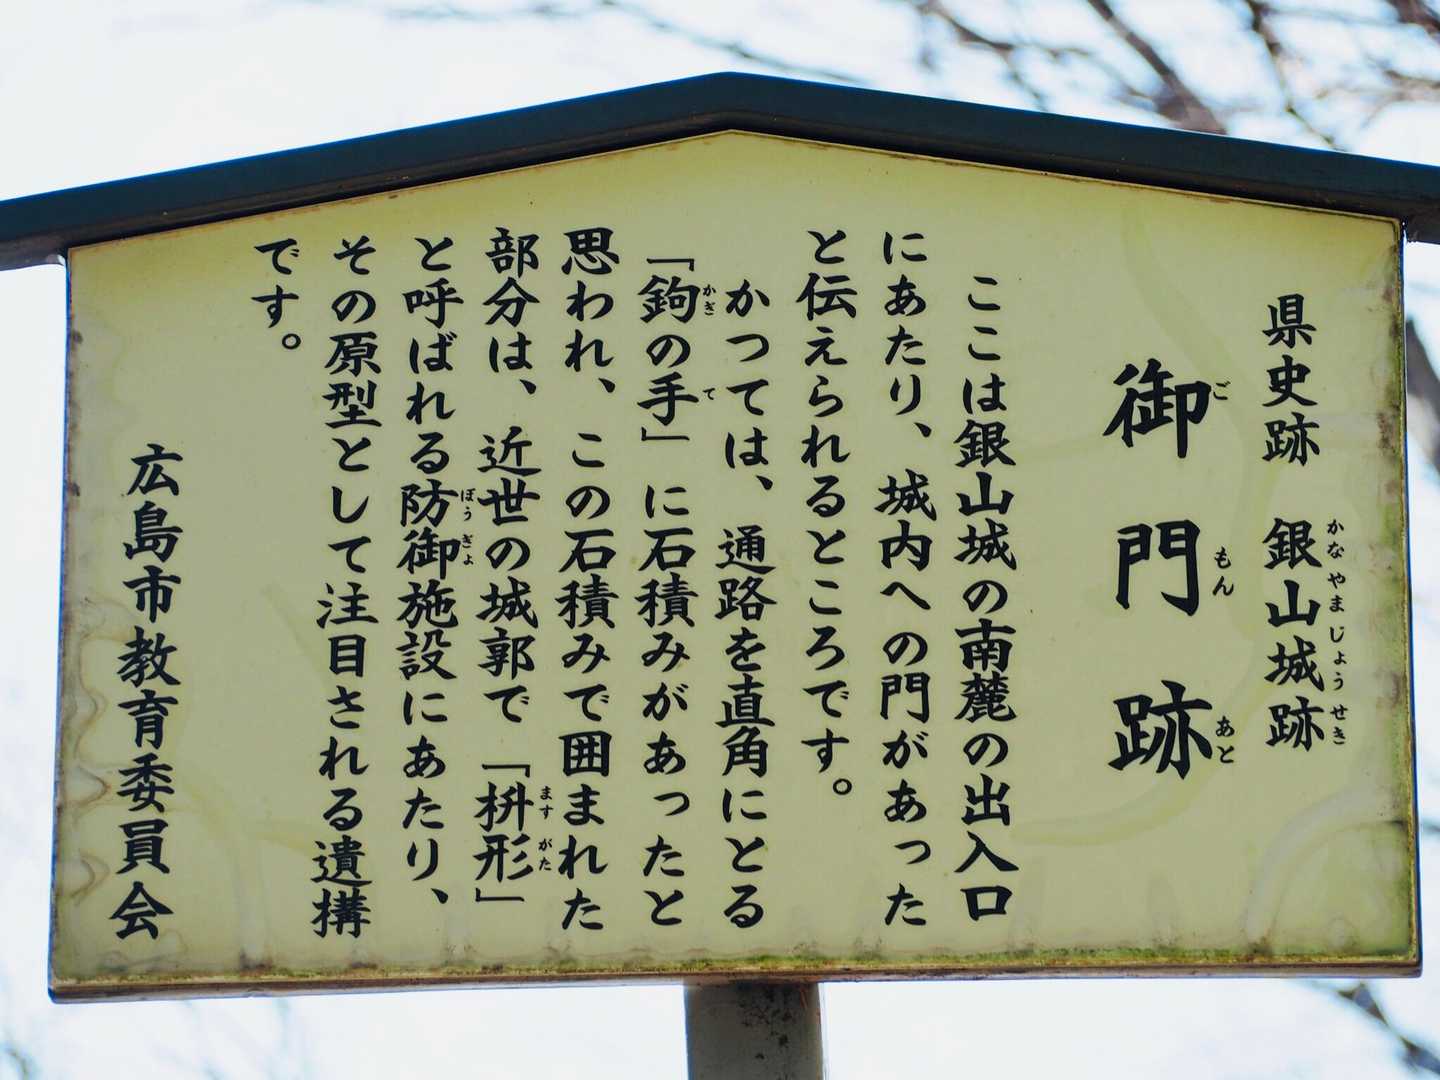 県史跡　銀山城跡
かなやまじょうせき
御門跡
ごもんあと
ここは銀山城の南麓の出入口
にあたり、城内への門があった
と伝えられるところです。
かつては、通路を直角にとる
「鉤の手」に石積みがあったと
かぎ　て
思われ、この石積みで囲まれた
部分は、近世の城郭で「枡形」
ますがた
と呼ばれる防御施設にあたり、
ぼうぎょ
その原型として注目される遺構
です。
広島市教育委員会